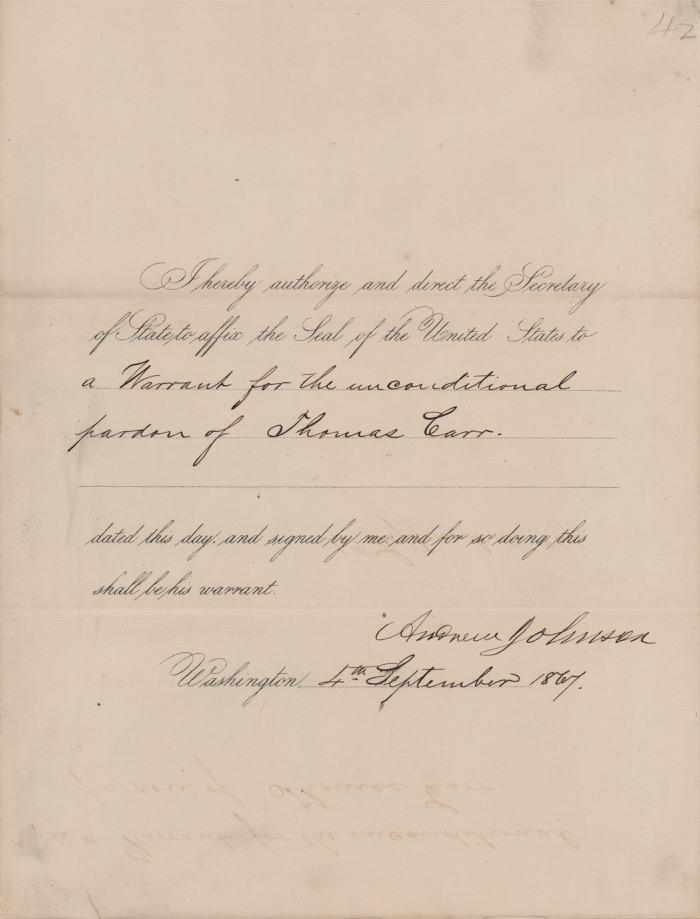 42
I hereby authorize and direct the Secretary
of State to affix the Seal of the United States to
a Warrant for the unconditional
pardon of Thomas Carr.
dated this day, and signed by me; and for so doing this
shall be his warrant.
Andrew Johnson
Washington, 4th September 1867.